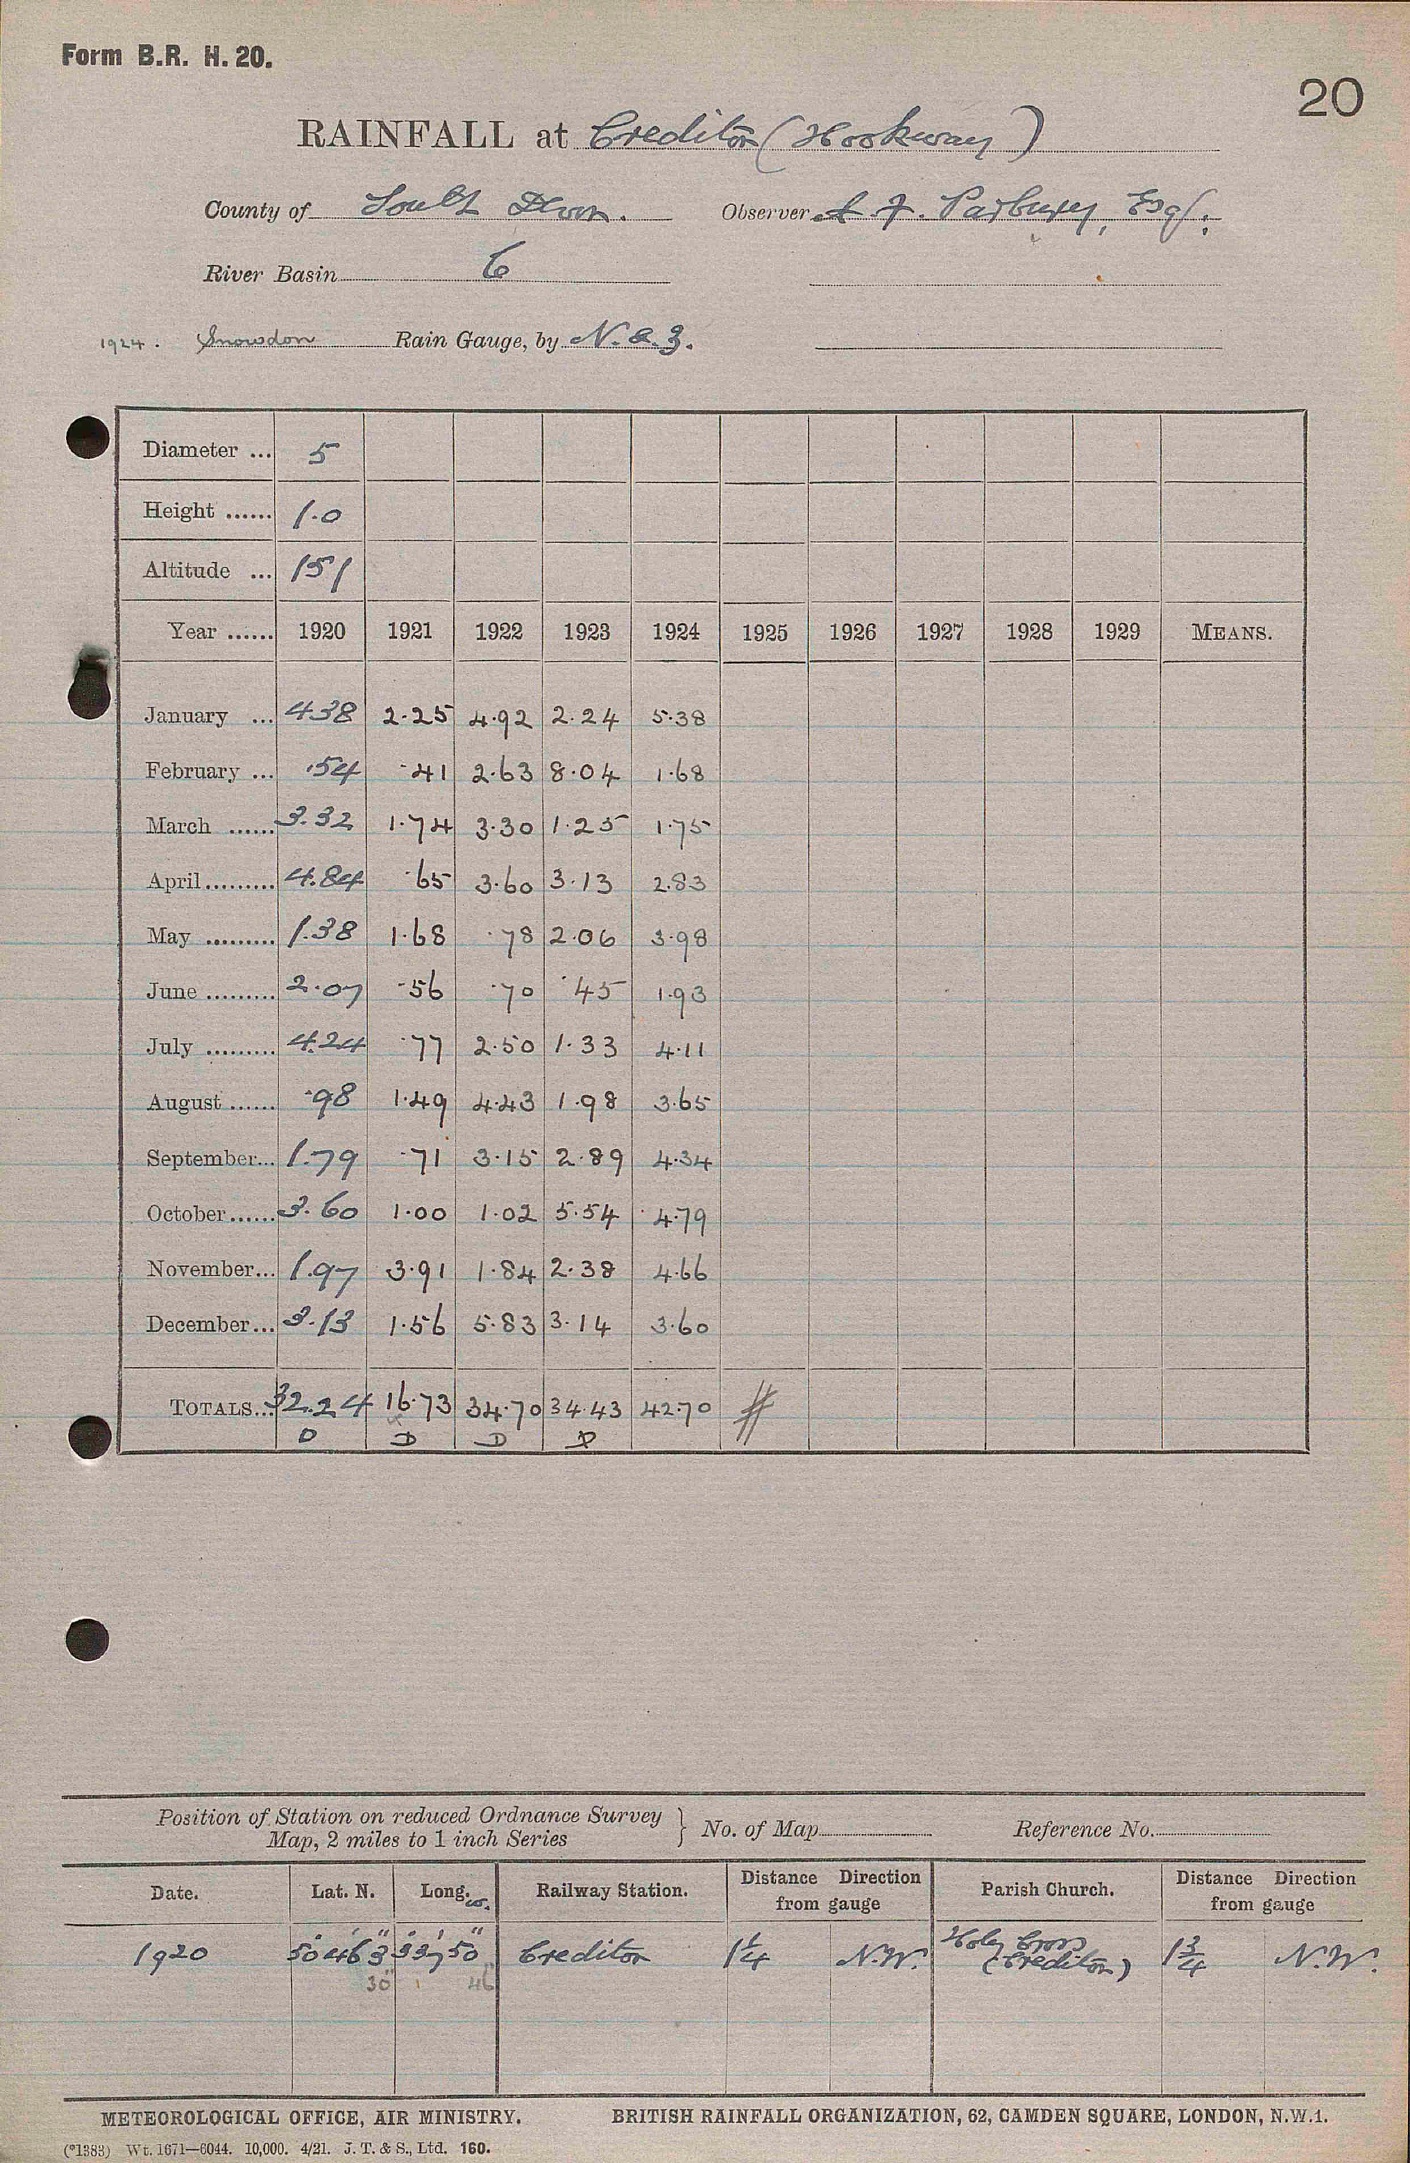 Form B.R. H. 20.
20
RAINFALL at Crediton (Hookway)
County of South Devon. Observer A. F. Parbury, Esq.
River Basin 6
1924. Snowdon Rain Gauge, by N. & Z.
Diameter ... 5
Height ...... 1.0
Altitude ... 151
Year ...... 1920 1921 1922 1923 1924 1925 1926 1927 1928 1929 MEANS.
January ... 4.38 2.25 4.92 2.24 5.38
February ... .54 .41 2.63 8.04 1.68
March ...... 3.32 1.74 3.30 1.25 1.75
April ......... 4.84 .65 3.60 3.13 2.83
May ......... 1.38 1.68 .78 2.06 3.98
June ......... 2.07 .56 .70 .45 1.93
July ......... 4.24 .77 2.50 1.33 4.11
August ...... .98 1.49 4.43 1.98 3.65
September... 1.79 .71 3.15 2.89 4.34
October...... 3.60 1.00 1.02 5.54 4.79
November... 1.97 3.91 1.84 2.38 4.66
December... 3.13 1.56 5.83 3.14 3.60
TOTALS... 32.24 16.73 34.70 34.43 42.70
D D D D
Position of Station on reduced Ordnance Survey
Map, 2 miles to 1 inch Series } No. of Map Reference No.
Date. Lat. N. Long. W. Railway Station. Distance Direction from gauge Parish Church. Distance Direction from gauge
1920 50° 46' 3" 3° 37' 50" Crediton 1¼ N.W. Holy Cross (Crediton) 1¾ N.W.
30" 46"
METEOROLOGICAL OFFICE, AIR MINISTRY. BRITISH RAINFALL ORGANIZATION, 62, CAMDEN SQUARE, LONDON, N.W.1.
(*1383) Wt. 1671—6044. 10,000. 4/21. J. T. & S., Ltd. 160.